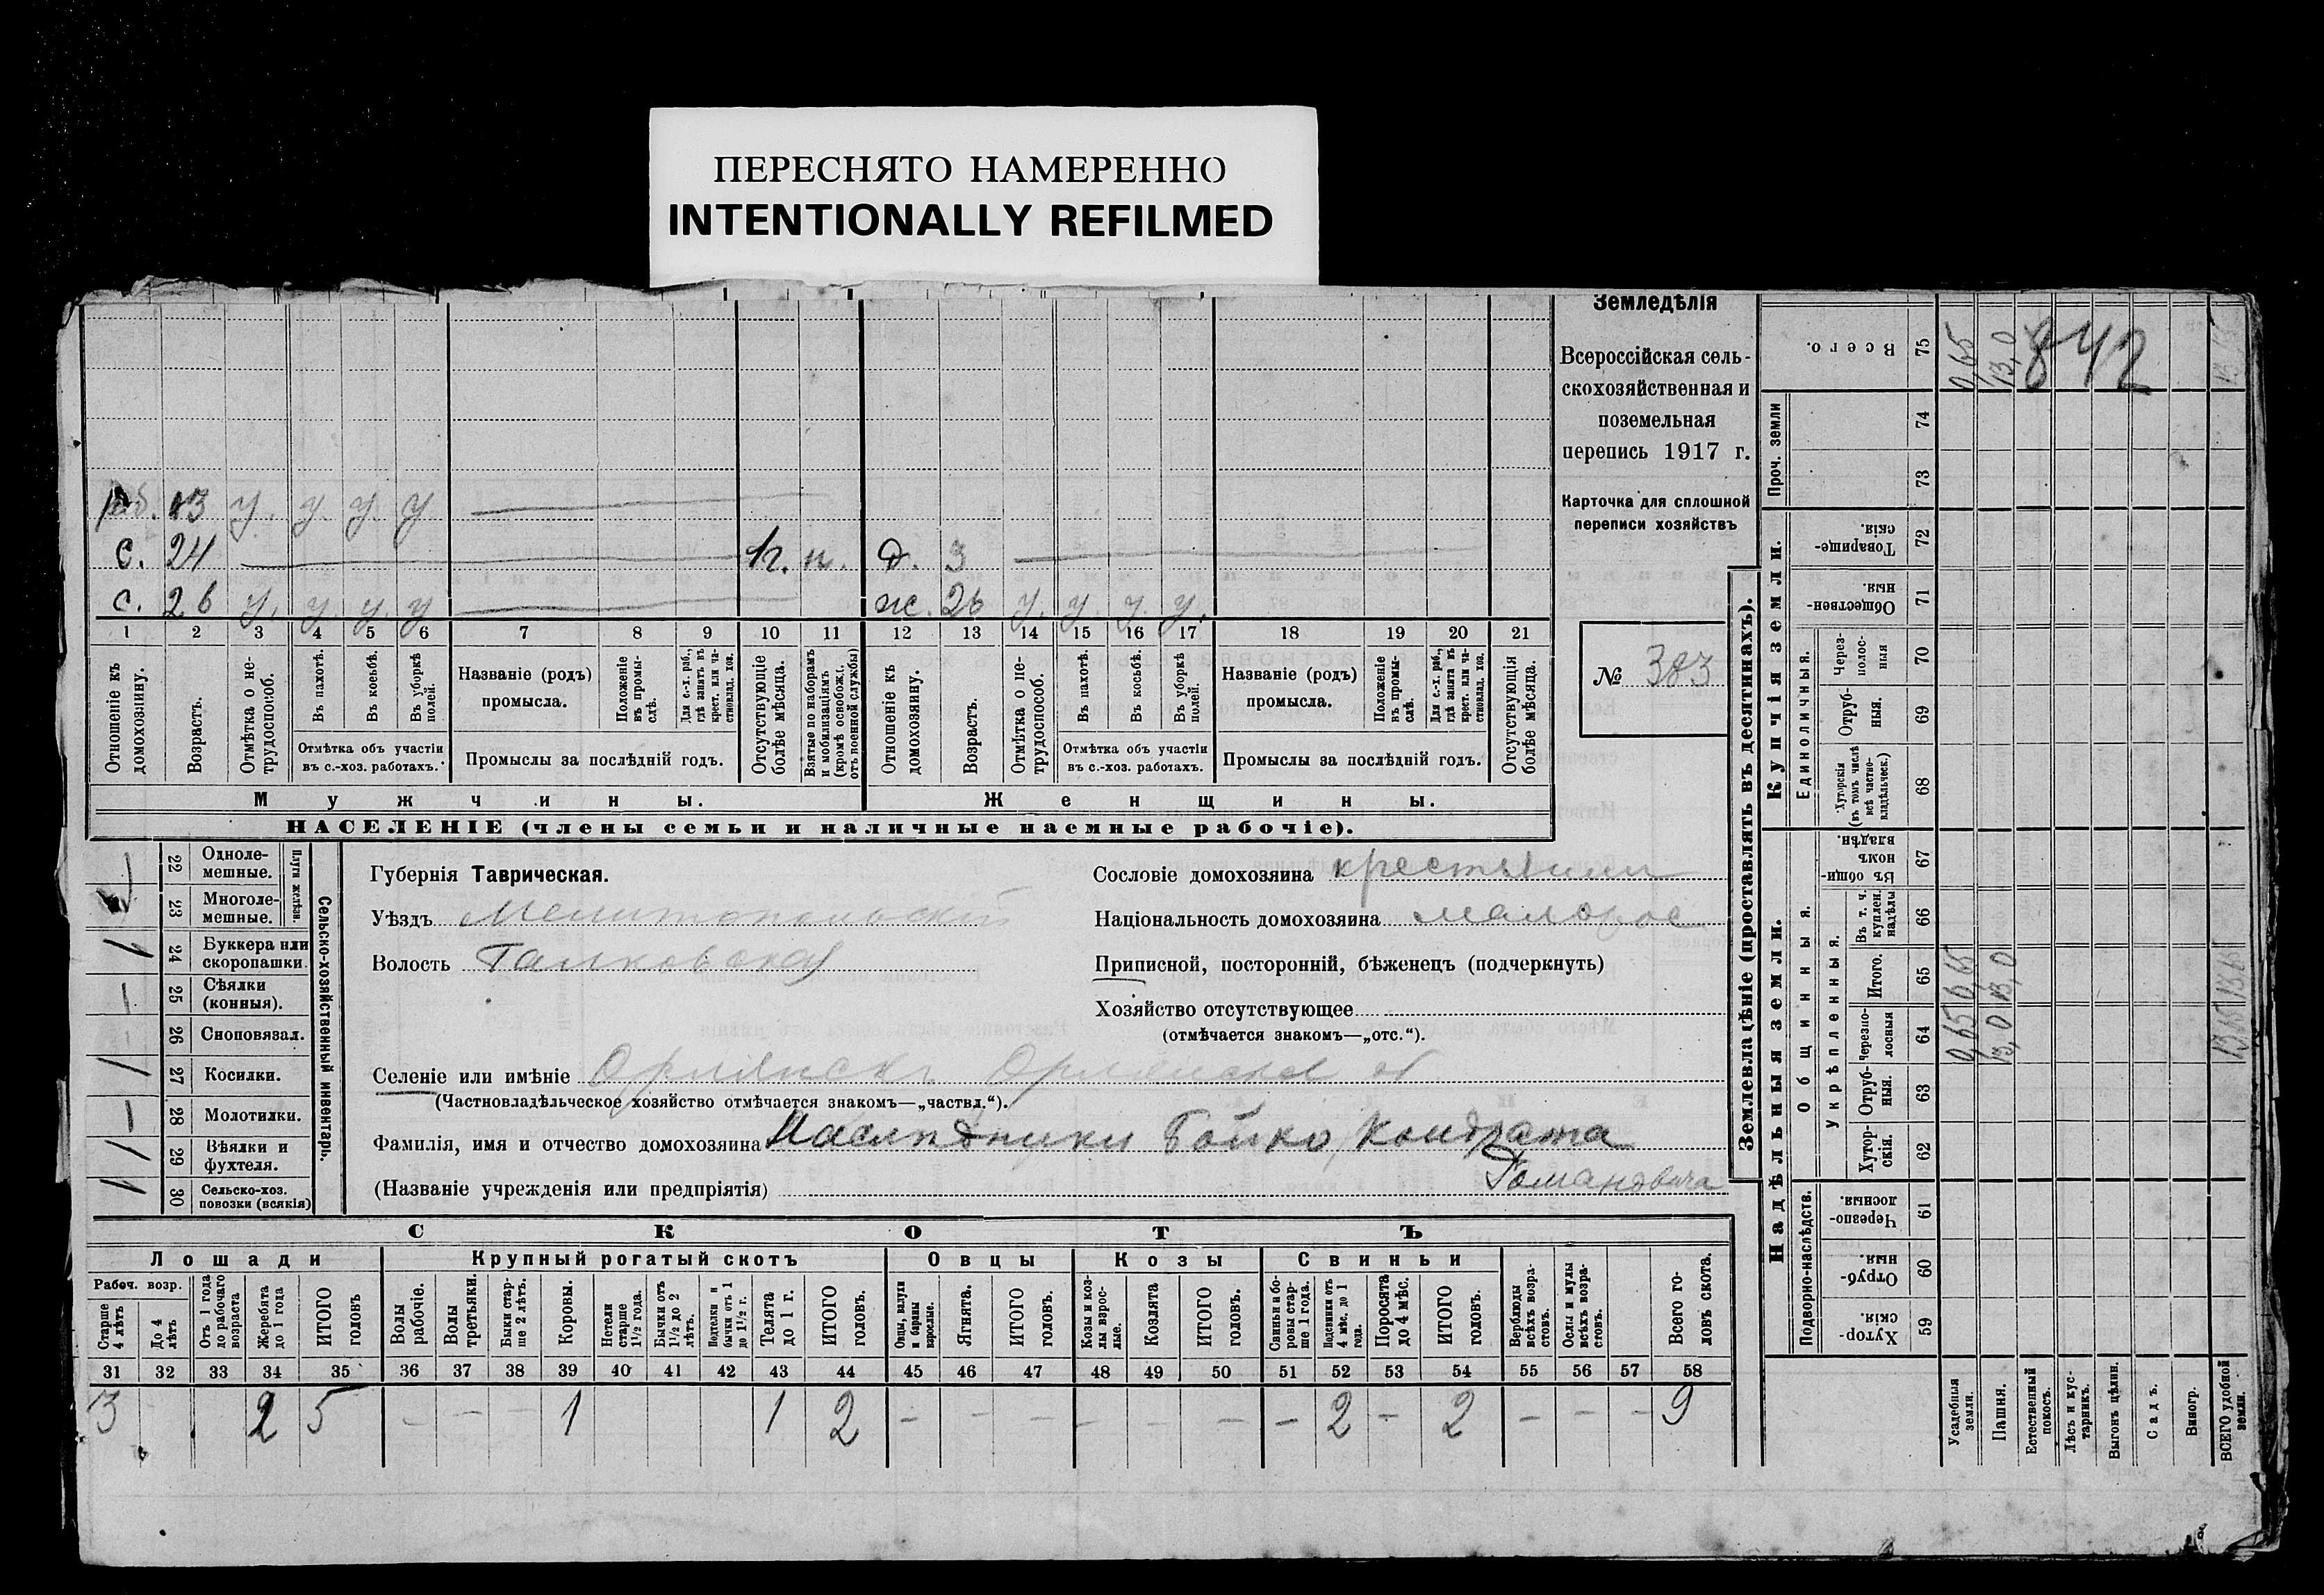 ПЕРЕСНЯТО НАМЕРЕННО
INTENTIONALLY REFILMED
Земледѣлія
Всероссійская сель-
скохозяйственная и
поземельная
перепись 1917 г.
Карточка для сплошной
переписи хозяйствъ
№ 383
13 у. у. у. у
с. 24 п. д. 3
с. 26 у. у. у. у ж. 26 у. у. у. у.
1 2 3 4 5 6 7 8 9 10 11 12 13 14 15 16 17 18 19 20 21
Отношеніе къ домохозяину.
Возрастъ.
Отмѣтка о не-трудоспособ.
Въ пахотѣ.
Въ косьбѣ.
Въ уборкѣ полей.
Отмѣтка объ участіи
въ с.-хоз. работахъ.
Названіе (родъ)
промысла.
Положеніе въ промы-слѣ.
Для с.-х. раб., гдѣ занятъ въ крест. или ча-стновлад. хоз.
Промыслы за послѣдній годъ.
Отсутствующіе болѣе мѣсяца.
Взятые по наборамъ и мобилизаціямъ (кромѣ освобожд. отъ военной службы)
Отношеніе къ домохозяину.
Возрастъ.
Отмѣтка о не-трудоспособ.
Въ пахотѣ.
Въ косьбѣ.
Въ уборкѣ полей.
Отмѣтка объ участіи
въ с.-хоз. работахъ.
Названіе (родъ)
промысла.
Положеніе въ промы-слѣ.
Для с.-х. раб., гдѣ занята въ крест. или ча-стновлад. хоз.
Промыслы за послѣдній годъ.
Отсутствующія болѣе мѣсяца.
Мужчины.
Женщины.
НАСЕЛЕНІЕ (члены семьи и наличные наемные рабочіе).
Сельско-хозяйственный инвентарь.
Плуги желѣзн.
22 Одноле-мешные.
23 Многоле-мешные.
24 Буккера или скоропашки.
25 Сѣялки (конныя).
26 Сноповязал.
27 Косилки.
28 Молотилки.
29 Вѣялки и фухтеля.
30 Сельско-хоз. повозки (всякія)
Губернія Таврическая.
Уѣздъ Мелитопольскій
Волость
Сословіе домохозяина крестьянин
Національность домохозяина малорос
Приписной, посторонній, бѣженецъ (подчеркнуть)
Хозяйство отсутствующее
(отмѣчается знакомъ—„отс.“).
Селеніе или имѣніе Орлянскъ
(Частновладѣльческое хозяйство отмѣчается знакомъ—„частвл.“).
Фамилія, имя и отчество домохозяина Наслѣдники Бойко Кондрата
Романовича
(Названіе учрежденія или предпріятія)
СКОТЪ
Лошади
Крупный рогатый скотъ
Овцы
Козы
Свиньи
Рабоч. возр.
Старше 4 лѣтъ
До 4 лѣтъ
Отъ 1 года до рабочаго возраста
Жеребята до 1 года
ИТОГО головъ
Волы рабочіе.
Волы третьяки.
Быки стар-ше 2 лѣтъ.
Коровы.
Нетели старше 1½ года.
Бычки отъ 1½ до 2 лѣтъ.
Подтелки и бычки отъ 1 до 1½ г.
Телята до 1 г.
ИТОГО головъ.
Овцы, валухи и бараны взрослые.
Ягнята.
ИТОГО головъ.
Козы и коз-лы взрос-лые.
Козлята
ИТОГО головъ.
Свиньи и бо-ровы стар-ше 1 года.
Подсвинки отъ 4 мѣс. до 1 года.
Поросята до 4 мѣс.
ИТОГО головъ.
Верблюды всѣхъ возра-стовъ.
Ослы и мулы всѣхъ возра-стовъ.
Всего го-ловъ скота.
31 32 33 34 35 36 37 38 39 40 41 42 43 44 45 46 47 48 49 50 51 52 53 54 55 56 57 58
3 2 5 – – – 1 1 2 – – – – – – – 2 – 2 – – – 9
Землевладѣніе (проставлять въ десятинахъ).
Надѣльныя земли.
Купчія земли.
Проч. земли
Всего.
Подворно-наслѣдств.
Общинныя.
Укрѣпленныя.
Единоличныя.
59 Хутор-скія.
60 Отруб-ныя.
61 Черезпо-лосныя.
62 Хутор-скія.
63 Отруб-ныя.
64 Черезпо-лосныя
65 Итого.
66 Въ т. ч. куплен. надѣлы
67 Въ общи-номъ владѣн.
68 Хуторскія (въ томъ числѣ всѣ частно-владѣльческ.)
69 Отруб-ныя.
70 Через-полос-ныя
71 Обществен-ныя.
72 Товарище-скія.
73
74
75
Усадебныя земли. 0,65 0,65 0,65
Пашня. 13,0 13,0 13,0
Естественный покосъ.
Лѣсъ и кус-тарникъ.
Выгонъ цѣлин.
Садъ.
Виногр.
ВСЕГО удобной земли. 13,65 13,65 13,65
842